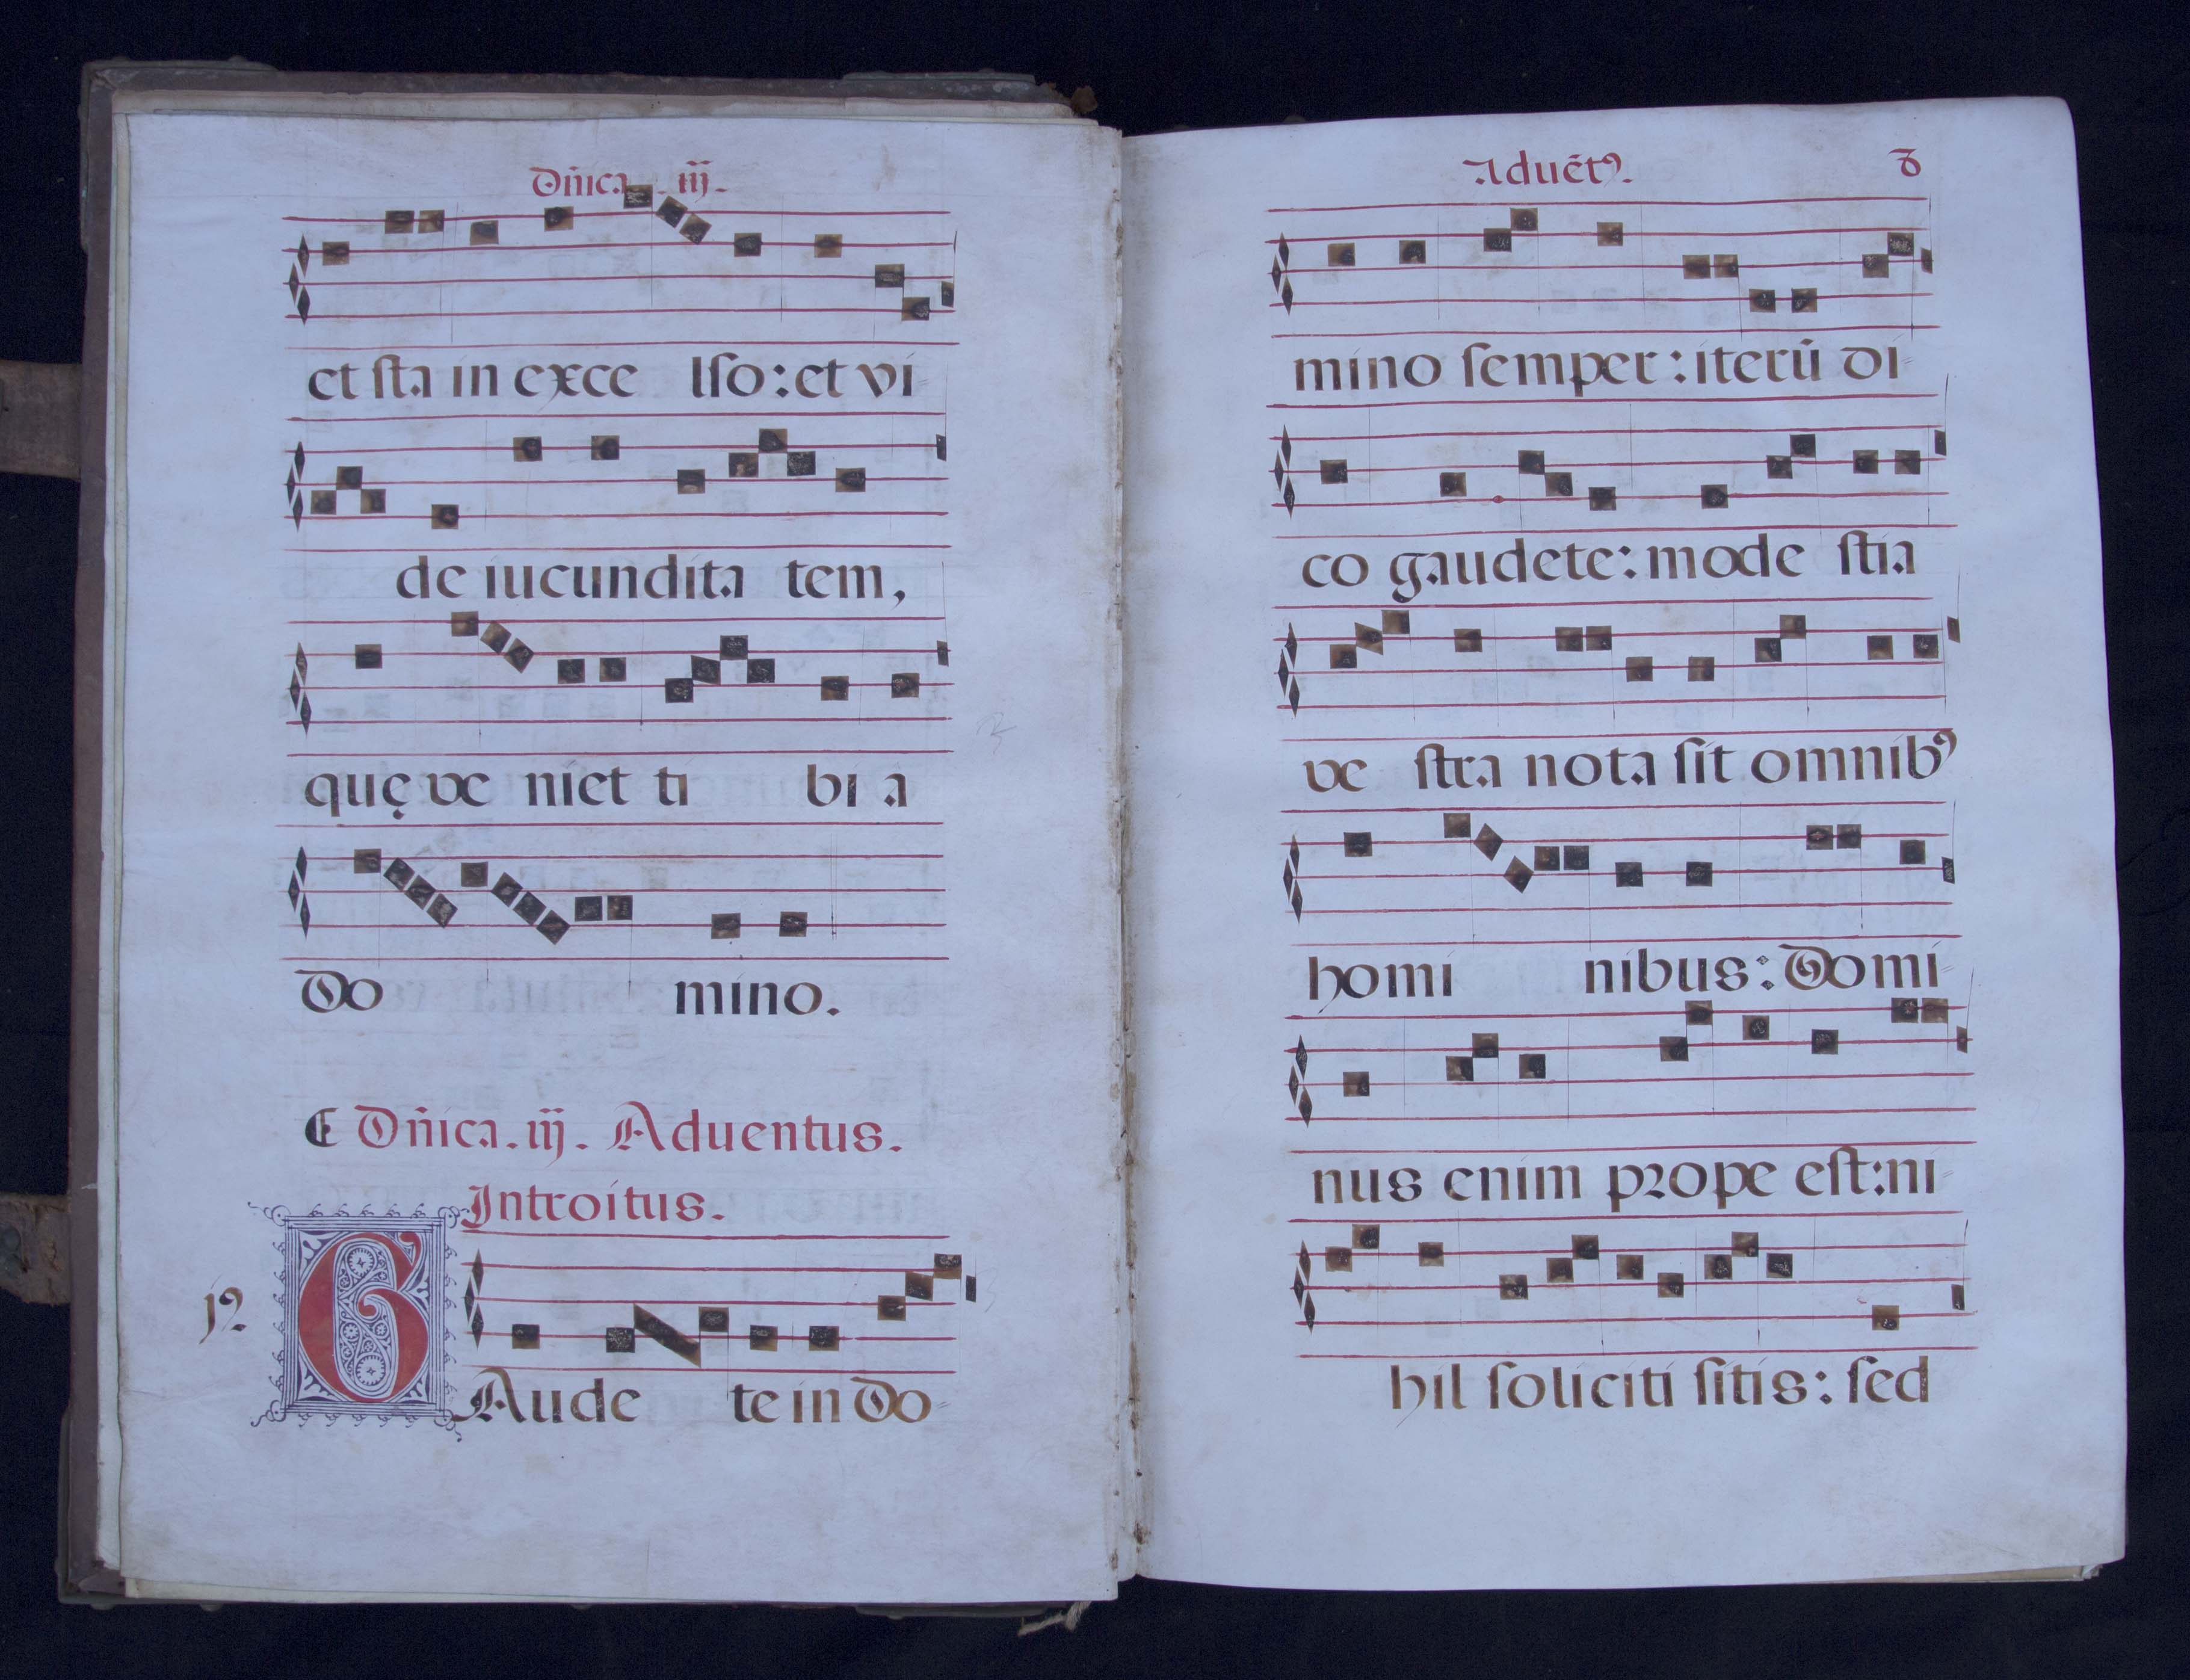 Dñica . iij .
et ſta in exce lſo : et vi-
de iucundita tem ,
quę ve niet ti bi a
Do mino .
Dñica . iij . Aduentus .
Introitus .
12
G
Aude te in Do-
Aduẽtꝰ .
8
mino ſemper : iterū di-
co gaudete : mode ſtia
ve ſtra nota ſit omnibꝰ
homi nibus : Domi-
nus enim prope eſt : ni-
hil ſoliciti ſitis : ſed